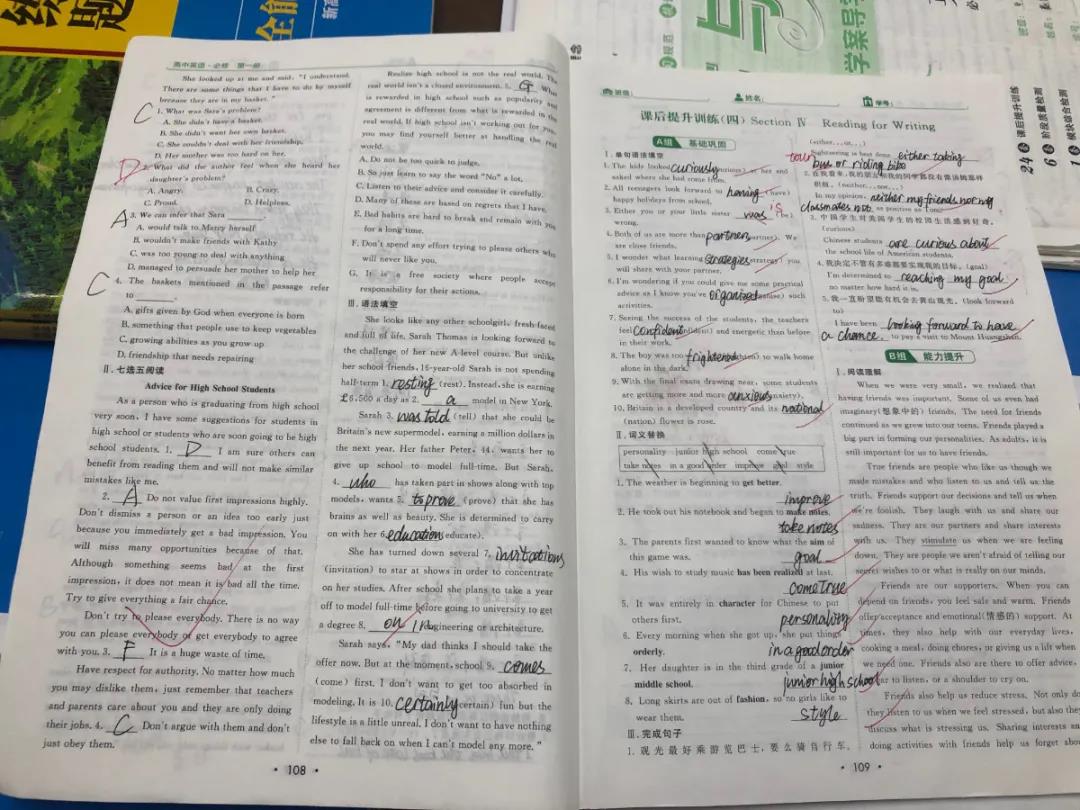 高中英语·必修 第一册
She looked up at me and said, "I understand.
There are some things that I have to do by myself
because they are in my basket."
C
1. What was Sara's problem?
A. She didn't have a basket.
B. She didn't want her own basket.
C. She couldn't deal with her friendship.
D. Her mother was too hard on her.
D
2. What did the author feel when she heard her
daughter's problem?
A. Angry. B. Crazy.
C. Proud. D. Helpless.
A
3. We can infer that Sara ______.
A. would talk to Marcy herself
B. wouldn't make friends with Kathy
C. was too young to deal with anything
D. managed to persuade her mother to help her
C
4. The baskets mentioned in the passage refer
to ______.
A. gifts given by God when everyone is born
B. something that people use to keep vegetables
C. growing abilities as you grow up
D. friendship that needs repairing
Ⅱ. 七选五阅读
Advice for High School Students
As a person who is graduating from high school
very soon, I have some suggestions for students in
high school or students who are soon going to be high
school students. 1. D I am sure others can
benefit from reading them and will not make similar
mistakes like me.
2. A Do not value first impressions highly.
Don't dismiss a person or an idea too early just
because you immediately get a bad impression. You
will miss many opportunities because of that.
Although something seems bad at the first
impression, it does not mean it is bad all the time.
Try to give everything a fair chance.
Don't try to please everybody. There is no way
you can please everybody or get everybody to agree
with you. 3. F It is a huge waste of time.
Have respect for authority. No matter how much
you may dislike them, just remember that teachers
and parents care about you and they are only doing
their jobs. 4. C Don't argue with them and don't
just obey them.
· 108 ·
Realize high school is not the real world. The
real world isn't a closed environment. 5. G What
is rewarded in high school such as popularity and
agreement is different from what is rewarded in the
real world. If high school isn't working out for you,
you may find yourself better at handling the real
world.
A. Do not be too quick to judge.
B. So just learn to say the word "No" a lot.
C. Listen to their advice and consider it carefully.
D. Many of these are based on regrets that I have.
E. Bad habits are hard to break and remain with you
for a long time.
F. Don't spend any effort trying to please others who
will never like you.
G. It is a free society where people accept
responsibility for their actions.
Ⅲ. 语法填空
She looks like any other schoolgirl, fresh-faced
and full of life. Sarah Thomas is looking forward to
the challenge of her new A-level course. But unlike
her school friends, 16-year-old Sarah is not spending
half-term 1. resting (rest). Instead, she is earning
£6,500 a day as 2. a model in New York.
Sarah 3. was told (tell) that she could be
Britain's new supermodel, earning a million dollars in
the next year. Her father Peter, 44, wants her to
give up school to model full-time. But Sarah,
4. who has taken part in shows along with top
models, wants 5. to prove (prove) that she has
brains as well as beauty. She is determined to carry
on with her 6. education (educate).
She has turned down several 7. invitations
(invitation) to star at shows in order to concentrate
on her studies. After school she plans to take a year
off to model full-time before going to university to get
a degree 8. on in engineering or architecture.
Sarah says, "My dad thinks I should take the
offer now. But at the moment, school 9. comes
(come) first. I don't want to get too absorbed in
modeling. It is 10. certainly (certain) fun but the
lifestyle is a little unreal. I don't want to have nothing
else to fall back on when I can't model any more."
班级: 姓名: 学号:
课后提升训练(四) Section Ⅳ Reading for Writing
A组 基础巩固
Ⅰ. 单句语法填空
1. The kids looked curiously at her and
asked where she had come from.
2. All teenagers look forward to having (have)
happy holidays from school.
3. Either you or your little sister was is (be)
wrong.
4. Both of us are more than partners (partner). We
are close friends.
5. I wonder what learning strategies (strategy) you
will share with your partner.
6. I'm wondering if you could give me some practical
advice as I know you've organized such
activities.
7. Seeing the success of the students, the teachers
feel confident and energetic than before
in their work.
8. The boy was too frightened to walk home
alone in the dark.
9. With the final exams drawing near, some students
are getting more and more anxious (anxiety).
10. Britain is a developed country and its national
(nation) flower is rose.
Ⅱ. 词义替换
personality junior high school come true
take notes in a good order improve goal style
1. The weather is beginning to get better.
improve
2. He took out his notebook and began to make notes.
take notes
3. The parents first wanted to know what the aim of
this game was.
goal
4. His wish to study music has been realized at last.
come true
5. It was entirely in character for Chinese to put
others first.
personality
6. Every morning when she got up, she put things
orderly.
in a good order
7. Her daughter is in the third grade of a junior
middle school.
junior high school
8. Long skirts are out of fashion, so no girls like to
wear them.
style
Ⅲ. 完成句子
1. 观光最好乘游览巴士，要么骑自行车。
(either...or...)
Sightseeing is best done either taking
tour bus or riding bike
2. 在我看来，我的朋友和我的同学都没有像汤姆那样
积极。(neither...nor...)
In my opinion, neither my friends nor my
classmates not as positive as Tom.
3. 中国学生对美国学生的校园生活感到好奇。
(curious)
Chinese students are curious about
the school life of American students.
4. 我决定不管有多难都要实现我的目标。(goal)
I'm determined to reaching my goal
no matter how hard it is.
5. 我一直盼望能有机会去黄山观光。(look forward
to)
I have been looking forward to have
a chance to pay a visit to Mount Huangshan.
B组 能力提升
Ⅰ. 阅读理解
When we were very small, we realized that
having friends was important. Some of us even had
imaginary(想象中的) friends. The need for friends
continued as we grew into our teens. Friends played a
big part in forming our personalities. As adults, it is
still important for us to have friends.
True friends are people who like us though we
made mistakes and who listen to us and tell us the
truth. Friends support our decisions and tell us when
we're foolish. They laugh with us and share our
sadness. They are our partners and share interests
with us. They stimulate us when we are feeling
down. They are people we aren't afraid of telling our
secret wishes to or what is really on our minds.
Friends are our supporters. When you can
depend on friends, you feel safe and warm. Friends
offer acceptance and emotional(情感的) support. At
times, they also help with our everyday lives,
cooking a meal, doing chores, or giving us a lift when
we need one. Friends also are there to offer advice,
ear to listen, or a shoulder to cry on.
Friends also help us reduce stress. Not only do
they listen to us when we feel stressed, but also they
discuss what is stressing us. Sharing interests and
doing activities with friends help us forget about
· 109 ·
学案导学
24 课后提升训练
6 阶段质量检测
1 模块综合检测